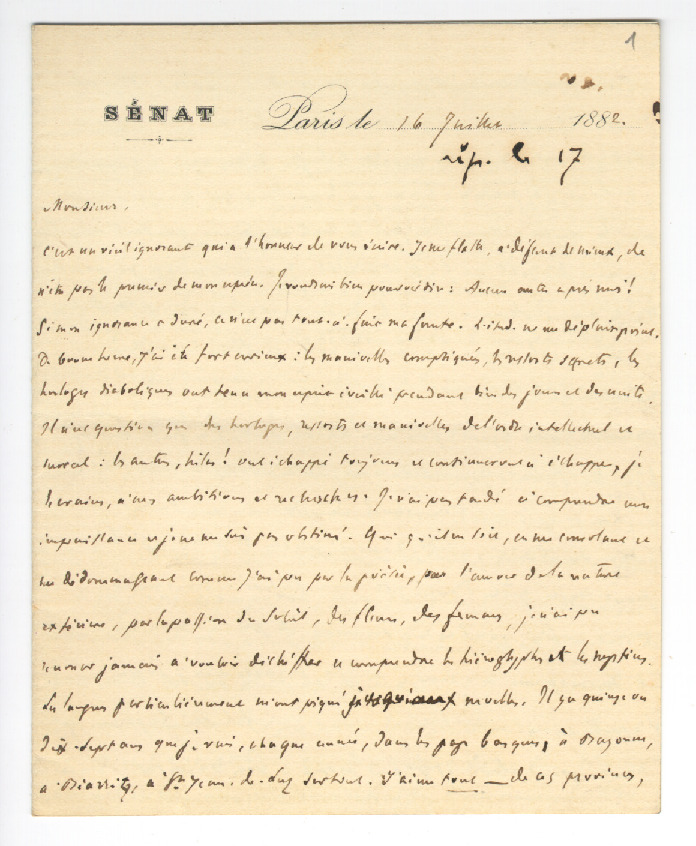 1
SÉNAT Paris le 16 Juillet 1882.
rép. le 17
Monsieur,
C'est un vieil ignorant qui a l'honneur de vous écrire. Je me flatte, à défaut de mieux, de
n'être pas le premier de mon espèce. Je voudrais bien pouvoir dire : Aucun autre après moi !
Si mon ignorance a duré, ce n'est pas tout-à-fait ma faute. L'étude ne me déplaisait point.
De bonne heure, j'ai été fort curieux : les manivelles compliquées, les ressorts secrets, les
horloges diaboliques ont tenu mon esprit éveillé pendant bien des jours et des nuits.
Il n'est question que des horloges, ressorts et manivelles de l'ordre intellectuel et
moral : les autres, hélas ! ont échappé toujours et continueront à échapper, je
le crains, à mes ambitions et recherches. Je n'ai pas tardé à comprendre mon
impuissance et je ne me suis pas obstiné. Quoi qu'il en soit, en me consolant et
me dédommageant comme j'ai pu par la poésie, par l'amour de la nature
extérieure, par la passion du Soleil, des fleurs, des femmes, je n'ai pu
renoncer jamais à vouloir déchiffrer et comprendre les hiéroglyphes et les
Les langues particulièrement m'ont piqué jusqu'aux moelles. Il y a quinze ou
dix-sept ans que je vais, chaque année, dans les pays basques, à Bayonne,
à Biarritz, à St Jean-de-Luz surtout. J'aime tout — de ces provinces,